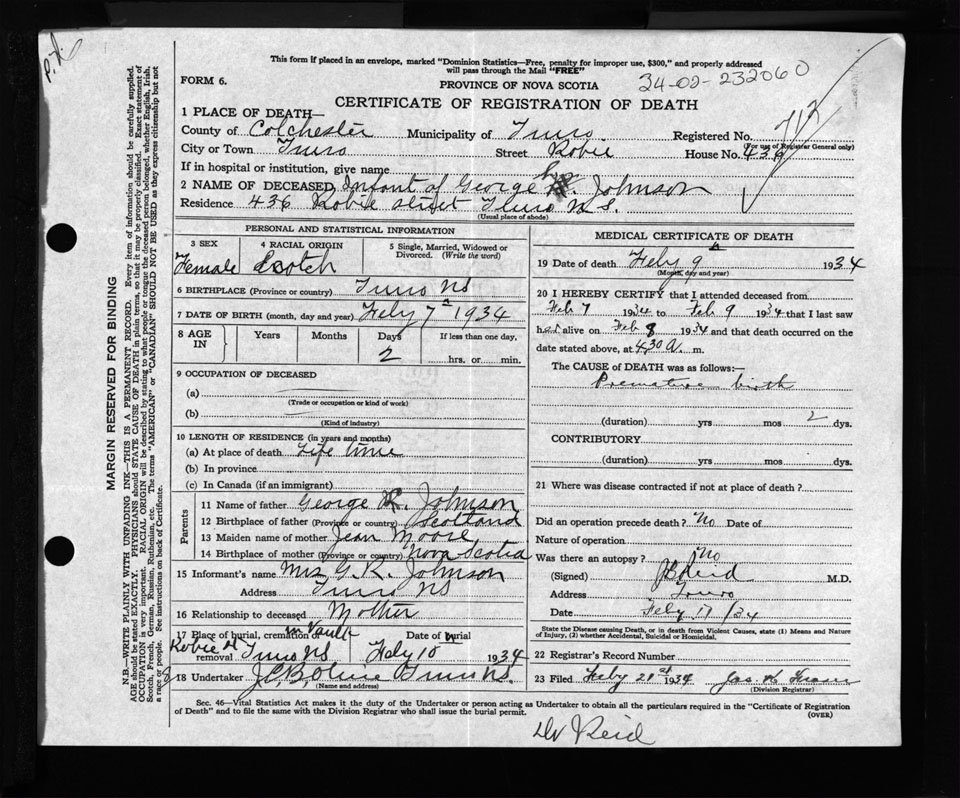 P.X.
This form if placed in an envelope, marked "Dominion Statistics—Free, penalty for improper use, $300," and properly addressed
will pass through the Mail "FREE"
FORM 6.
PROVINCE OF NOVA SCOTIA
34-02-232060
CERTIFICATE OF REGISTRATION OF DEATH
1 PLACE OF DEATH—
County of Colchester Municipality of Truro Registered No. 712
(For use of Registrar General only)
City or Town Truro Street Robie House No. 436
If in hospital or institution, give name
2 NAME OF DECEASED Infant of George R. Johnson
Residence 436 Robie Street Truro N.S.
(Usual place of abode)
PERSONAL AND STATISTICAL INFORMATION
3 SEX 4 RACIAL ORIGIN 5 Single, Married, Widowed or
Divorced. (Write the word)
Female Scotch
6 BIRTHPLACE (Province or country) Truro NS
7 DATE OF BIRTH (month, day and year) Feby 7th 1934
8 AGE IN Years Months Days If less than one day,
2 hrs. or min.
9 OCCUPATION OF DECEASED
(a)
(Trade or occupation or kind of work)
(b)
(Kind of industry)
10 LENGTH OF RESIDENCE (in years and months)
(a) At place of death Life time
(b) In province
(c) In Canada (if an immigrant)
Parents
11 Name of father George R. Johnson
12 Birthplace of father (Province or country) Scotland
13 Maiden name of mother Jean Moore
14 Birthplace of mother (Province or country) Nova Scotia
15 Informant's name Mrs G. R. Johnson
Address Truro NS
16 Relationship to deceased Mother
17 Place of burial, cremation or Vault Date of burial
Robie St removal Truro NS Feby 10 1934
18 Undertaker Truro N.S.
(Name and address)
MEDICAL CERTIFICATE OF DEATH
19 Date of death Feby 9th 1934
(Month, day and year)
20 I HEREBY CERTIFY that I attended deceased from
Feb 7 1934 to Feb 9 1934 that I last saw
h er alive on Feb 8 1934 and that death occurred on the
date stated above, at 4.30 a. m.
The CAUSE of DEATH was as follows:—
Premature birth
(duration) yrs mos 2 dys.
CONTRIBUTORY
(duration) yrs mos dys.
21 Where was disease contracted if not at place of death?
Did an operation precede death? No Date of
Nature of operation
Was there an autopsy? No
(Signed) Reid M.D.
Address Truro
Date Feby 17/34
State the Disease causing Death, or in death from Violent Causes, state (1) Means and Nature
of Injury, (2) whether Accidental, Suicidal or Homicidal.
22 Registrar's Record Number
23 Filed Feby 21st 1934 Jas. K. Fraser
(Division Registrar)
Sec. 46—Vital Statistics Act makes it the duty of the Undertaker or person acting as Undertaker to obtain all the particulars required in the "Certificate of Registration
of Death" and to file the same with the Division Registrar who shall issue the burial permit. (OVER)
Dr Reid
MARGIN RESERVED FOR BINDING
N.B.—WRITE PLAINLY WITH UNFADING INK—THIS IS A PERMANENT RECORD. Every item of information should be carefully supplied.
AGE should be stated EXACTLY. PHYSICIANS should STATE CAUSE OF DEATH in plain terms, so that it may be properly classified. Exact statement of
OCCUPATION is very important. RACIAL ORIGIN will be described by stating to what people or tongue the deceased person belonged, whether English, Irish,
Scotch, French, German, Russian, Ruthenian, etc. The terms "AMERICAN" or "CANADIAN" SHOULD NOT BE USED as they express citizenship but not
a race or people. See instructions on back of Certificate.